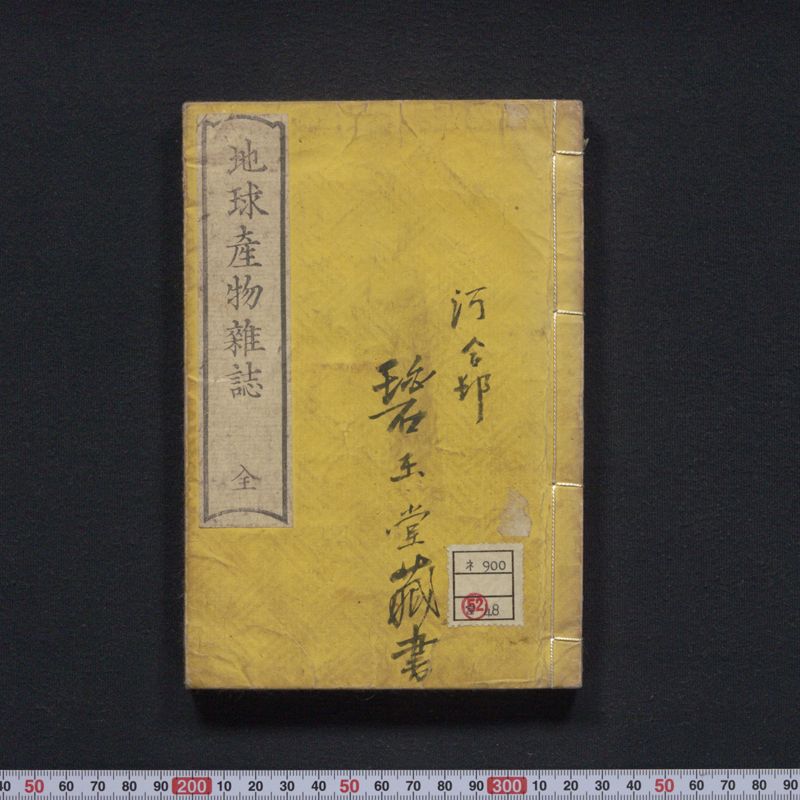 地球產物雜誌 全
河合邨
碧玉堂藏書
ネ 900
52
48
40 50 60 70 80 90 200 10 20 30 40 50 60 70 80 90 300 10 20 30 40 50 60 70 80 90